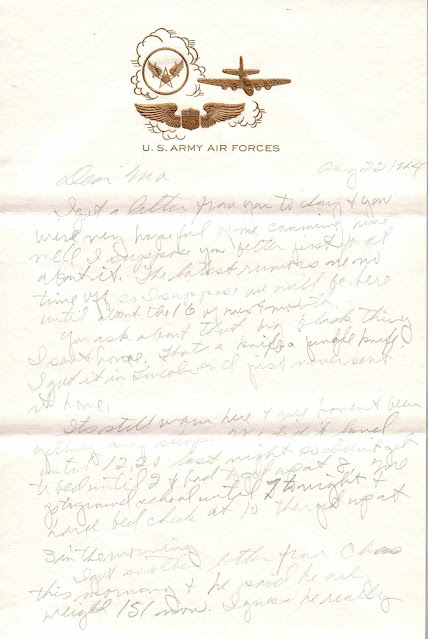 U. S. ARMY AIR FORCES
Aug 22 1944
Dear Ma
I got a letter from you today & you
were very hopeful of me comming home
well I suppose you better just
about it. The latest rumors are no
time off so I suppose we will be here
until about the 16 of next month.
You ask about that big black thing
I sent home. That's a knife a jungle knife.
I got it in Lincoln and just never sent
it home.
Its still warm here & we haven't been
getting any sleep. We didn't land
until 12:20 last night so didn't get
to bed until 2 & had to at 8, we
go to ground school until 7 tonight &
have bed check at 10 then get up at
3 in the morning
I got another letter from Chas
this morning & he said he only
weighed 151 now. I guess he really